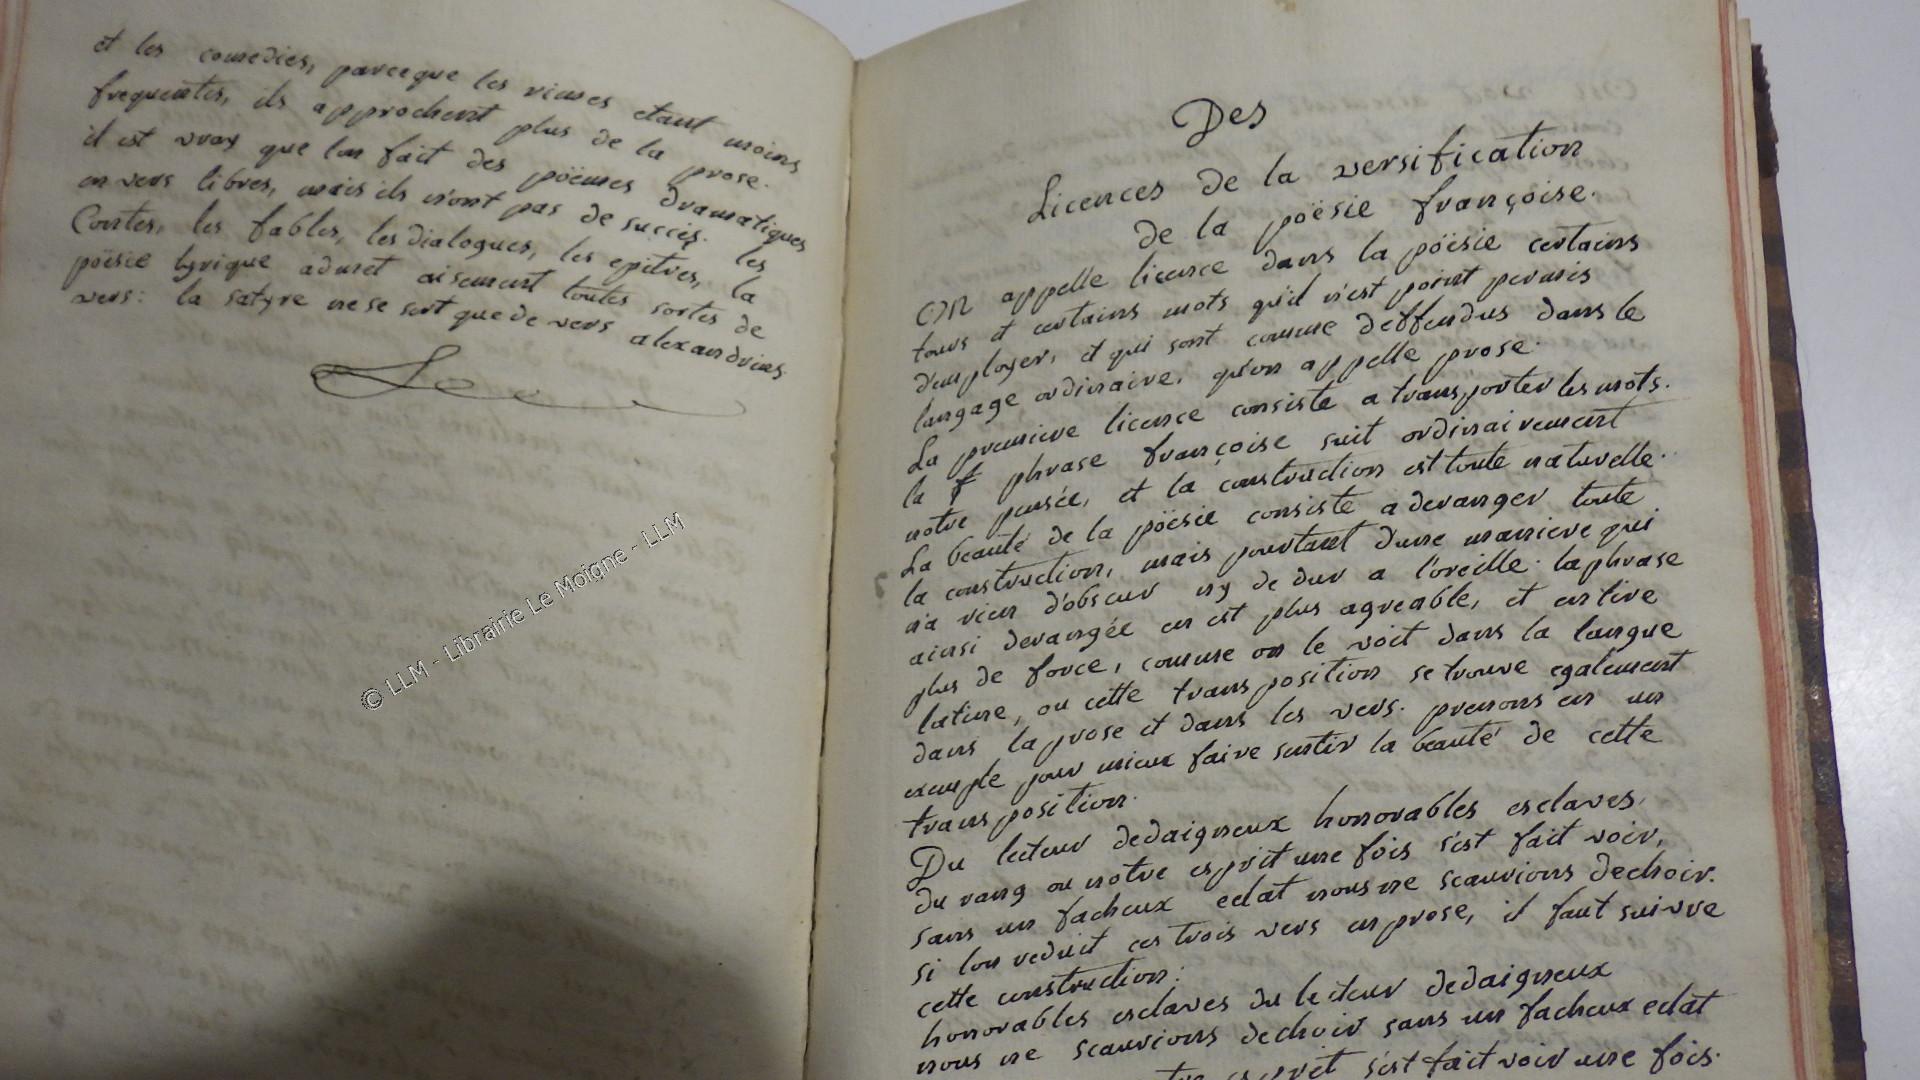 et les comedies, parceque les rimes etant moins
frequentes, ils approchent plus de la prose.
il est vray que lon fait des pöemes dramatiques
en vers libres, mais ils n'ont pas de succès. les
Contes, les fables, les dialogues, les epitres, la
pöesie lyrique admet aisement toutes sortes de
vers: la satyre ne se sert que de vers alexandrins
© LLM - Librairie Le Moigne - LLM
Des
Licences de la versification
de la pöesie françoise.
On appelle licence dans la pöesie certains
tours et certains mots qu'il n'est point permis
d'employer, et qui sont comme deffendus dans le
langage ordinaire, qu'on appelle prose.
La premiere licence consiste a transporter les mots.
la phrase françoise suit ordinairement
notre pensée, et la construction est toute naturelle.
La beauté de la pöesie consiste a deranger toute
la construction, mais pourtant dune maniere qui
n'a rien d'obscur ny de dur a l'oreille. la phrase
ainsi derangée en est plus agreable, et en tire
plus de force, comme on le voit dans la langue
latine, ou cette transposition se trouve egalement
dans la prose et dans les vers. prenons en un
exemple pour mieux faire sentir la beauté de cette
transposition.
Du lecteur dedaigneux honorables esclaves,
du rang ou notre esprit une fois s'est fait voir,
sans un facheux eclat nous ne scaurions dechoir.
si lon reduit ces trois vers en prose, il faut suivre
cette construction:
honorables esclaves du lecteur dedaigneux
nous ne scaurions dechoir sans un facheux eclat
esprit s'est fait voir une fois.